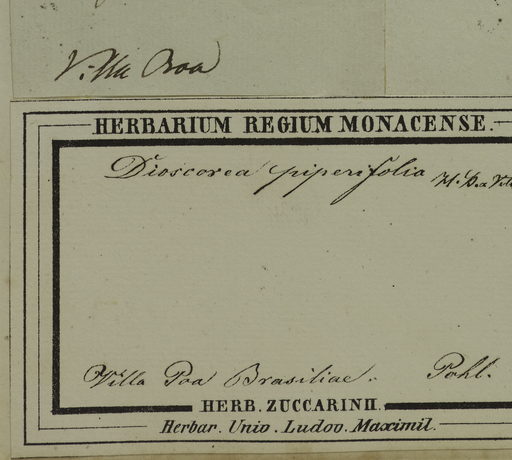 Villa Boa
HERBARIUM REGIUM MONACENSE.
Dioscorea piperifolia H. B. a
Villa Poa Brasiliae. Pohl.
HERB. ZUCCARINII.
Herbar. Univ. Ludov. Maximil.